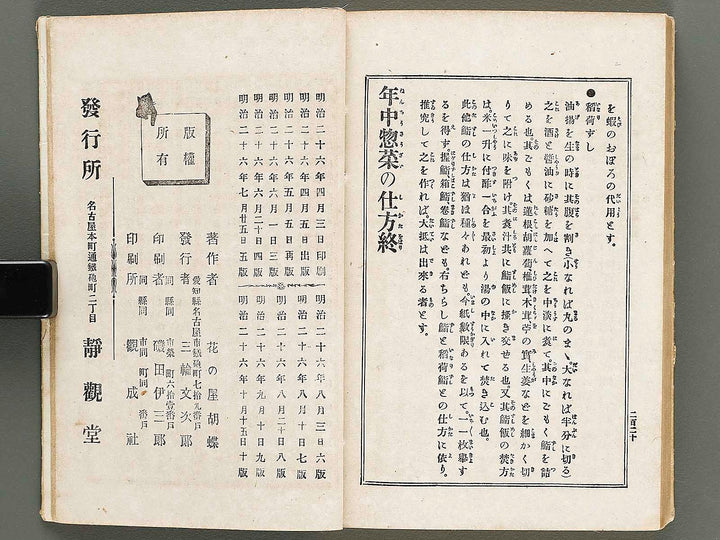 を蝦のおぼろの代用とす。
●稻荷ずし
油揚を生の時に其腹を割き(小なれば丸のまゝ大なれば半分に切る)
之を酒と醬油に砂糖を加へて之を中淡に煮て。其中にごもく鮨を詰
める也其ごもくは蓮根胡蘿蔔椎茸木茸、苧の實生姜などを細かく切
りて之に味を附け其煮汁共に鮨飯に搔き交せる也又其鮨飯の焚方
は米一升に付酢一合を最初より湯の中に入れて焚き込む也。
此他鮨の仕方は猶ほ種々あれども。今紙數限あるを以て一一枚擧す
るを得ず握鮨箱鮨卷鮨なども。右ちらし鮨と稻荷鮨との仕方に依り。
推究して之を作れば。大抵は出來る者とす。
年中惣菜の仕方終
二百二十
明治二十六年四月三日印刷
明治二十六年五月五日出版
明治二十六年五月五日再版
明治二十六年六月一日三版
明治二十六年六月二十日四版
明治二十六年七月廿五日五版
明治二十六年八月三日六版
明治二十六年八月十日七版
明治二十六年八月二十日八版
明治二十六年九月十日九版
明治二十六年十月十五日十版
版權
所有
著作者 花の屋胡蝶
愛知縣名古屋市鐵砲町七拾九番戶
發行者 三輪文次郎
同縣同市榮町六拾壹番戶
印刷者 磯田伊三郎
同縣同市同町同番戶
印刷所 觀成社
名古屋本町通鐵砲町二丁目
發行所 靜觀堂